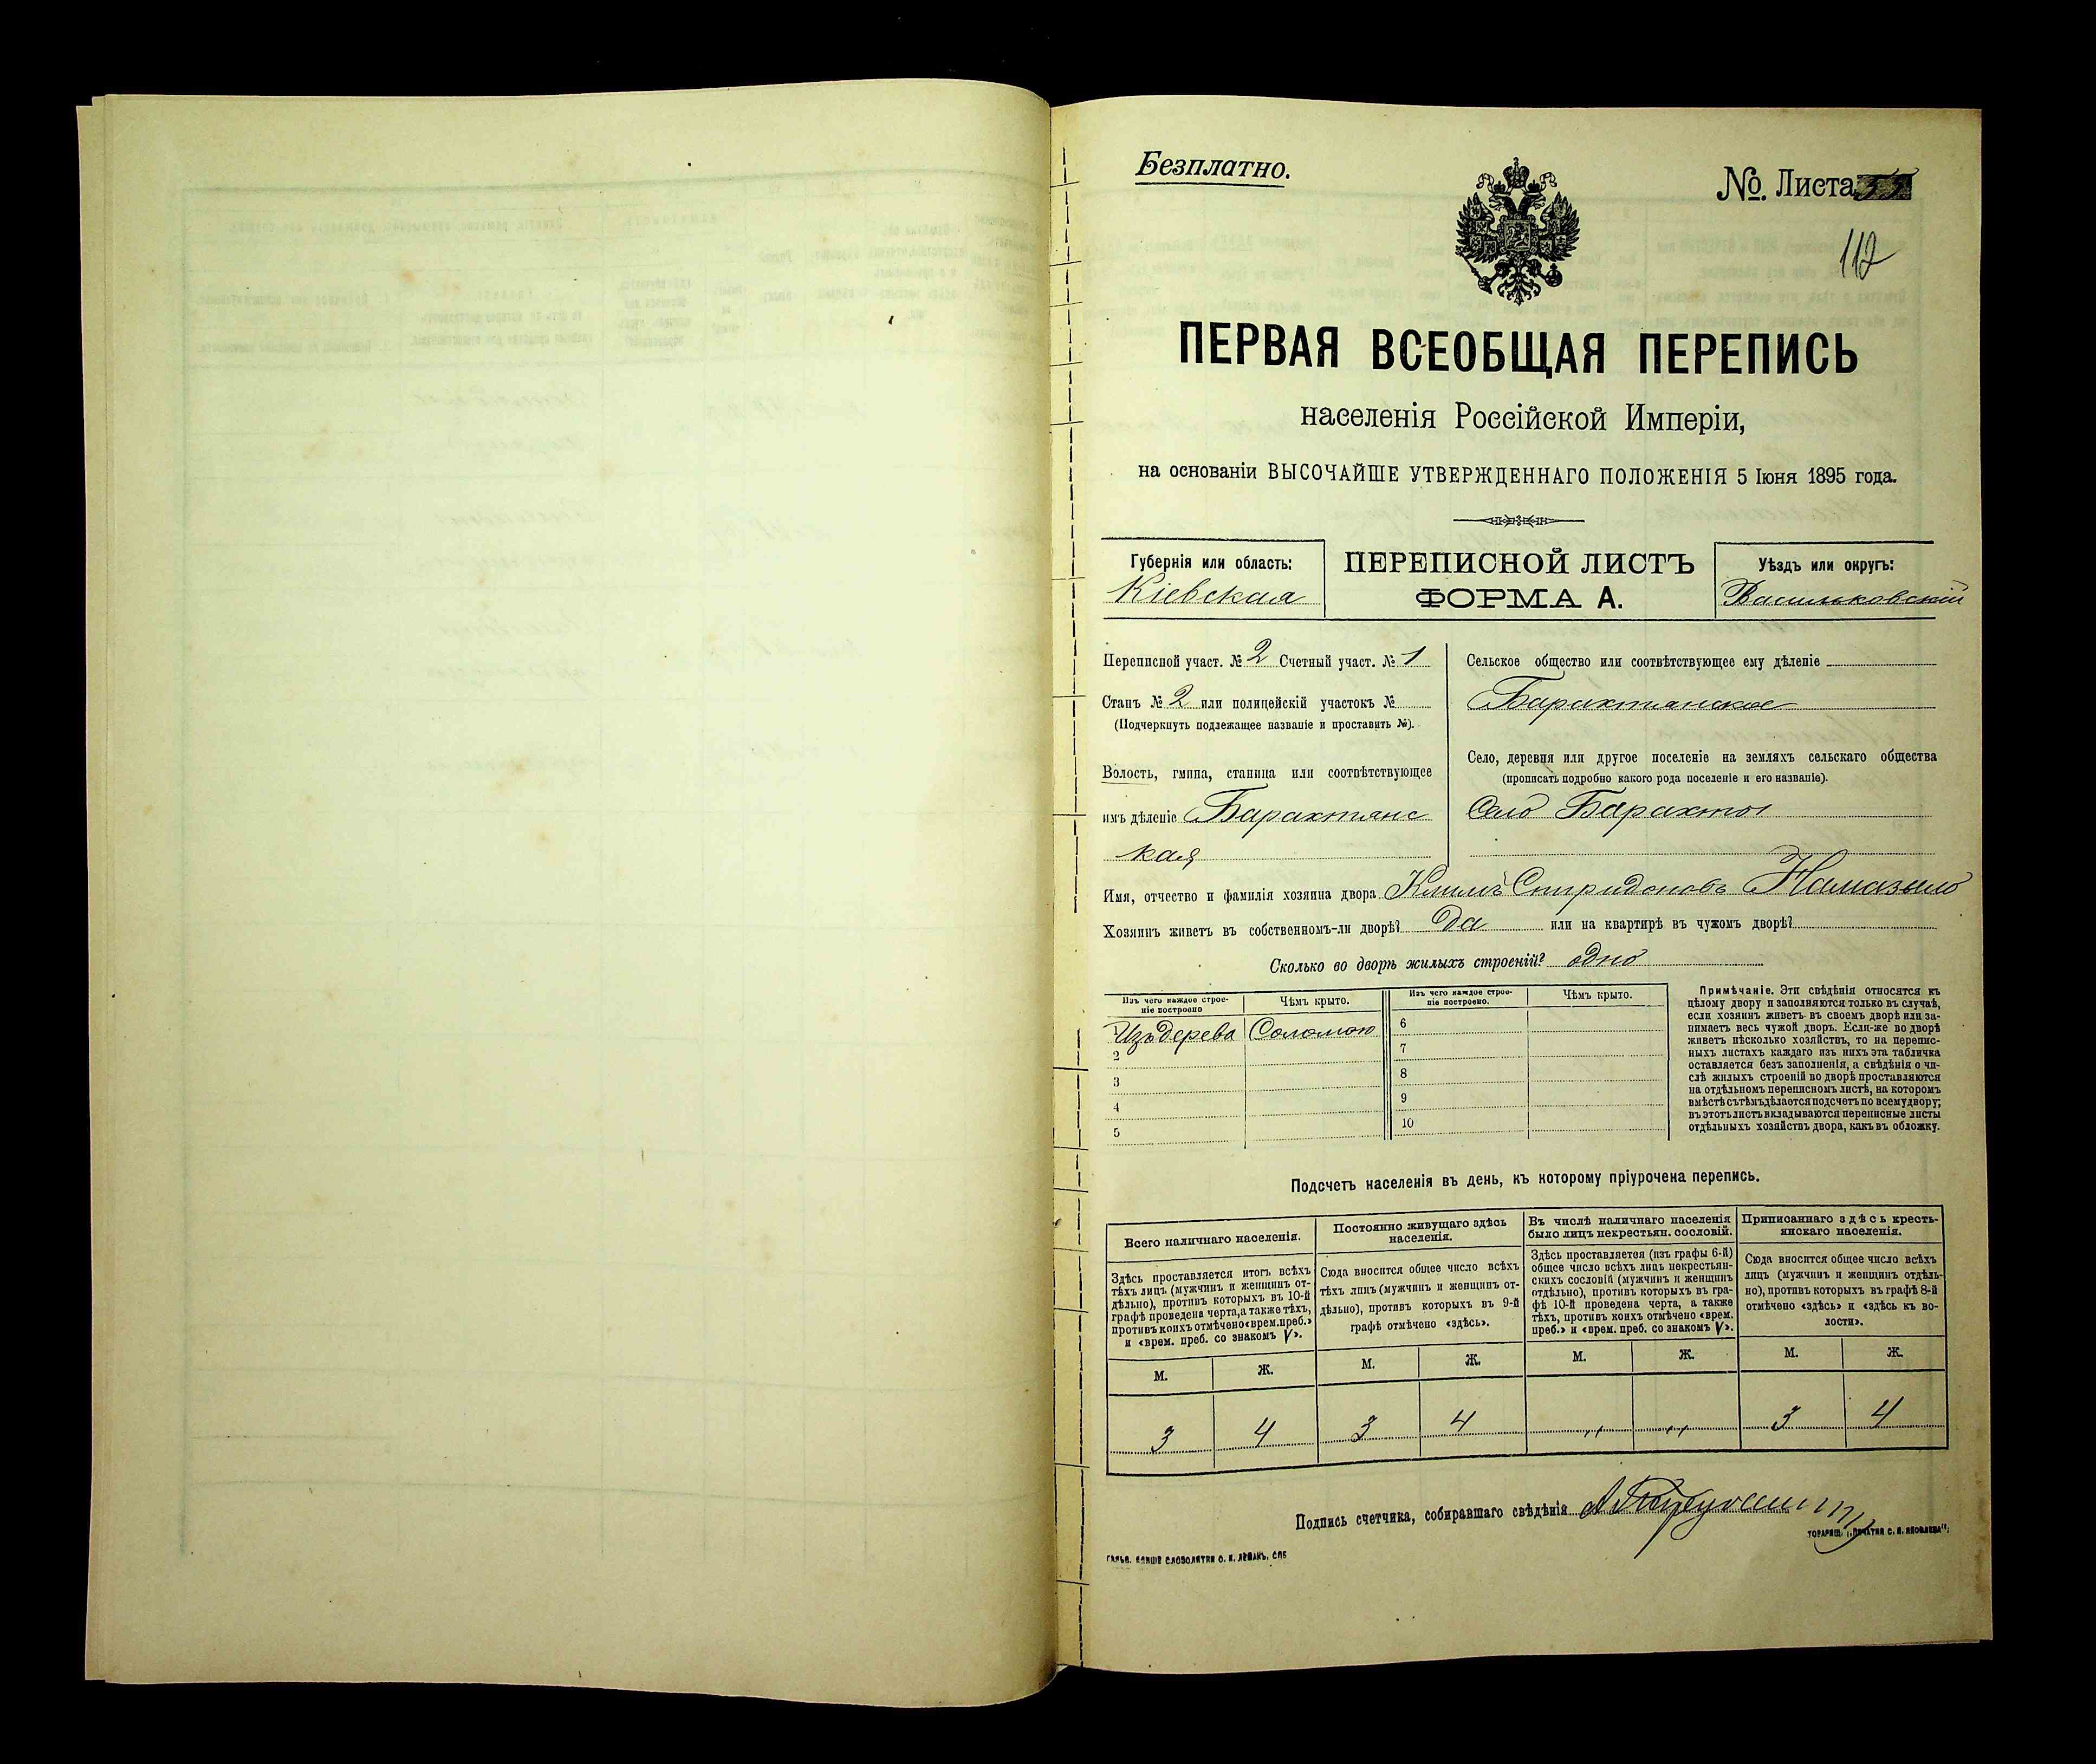 Безплатно.
№ Листа 55
112
ПЕРВАЯ ВСЕОБЩАЯ ПЕРЕПИСЬ
населенія Россійской Имперіи,
на основаніи ВЫСОЧАЙШЕ УТВЕРЖДЕННАГО ПОЛОЖЕНІЯ 5 Іюня 1895 года.
Губернія или область:
Кіевская
ПЕРЕПИСНОЙ ЛИСТЪ
ФОРМА А.
Уѣздъ или округъ:
Васильковскій
Переписной участ. № 2 Счетный участ. № 1
Станъ № 2 или полицейскій участокъ №
(Подчеркнуть подлежащее названіе и проставить №).
Волость, гмина, станица или соотвѣтствующее
имъ дѣленіе Барахтянс
кая
Сельское общество или соотвѣтствующее ему дѣленіе
Барахтянское
Село, деревня или другое поселеніе на земляхъ сельскаго общества
(прописать подробно какого рода поселеніе и его названіе).
Село Барахты
Имя, отчество и фамилія хозяина двора Климъ Спиридоновъ
Хозяинъ живетъ въ собственномъ-ли дворѣ? да или на квартирѣ въ чужомъ дворѣ?
Сколько во дворѣ жилыхъ строеній? одно
Изъ чего каждое строе-
ніе построено
Чѣмъ крыто.
Изъ чего каждое строе-
ніе построено.
Чѣмъ крыто.
1 Изъ дерева Соломою
2
3
4
5
6
7
8
9
10
Примѣчаніе. Эти свѣдѣнія относятся къ
цѣлому двору и заполняются только въ случаѣ,
если хозяинъ живетъ въ своемъ дворѣ или за-
нимаетъ весь чужой дворъ. Если-же во дворѣ
живетъ нѣсколько хозяйствъ, то на перепис-
ныхъ листахъ каждаго изъ нихъ эта табличка
оставляется безъ заполненія, а свѣдѣнія о чи-
слѣ жилыхъ строеній во дворѣ проставляются
на отдѣльномъ переписномъ листѣ, на которомъ
вмѣстѣ съ тѣмъ дѣлается подсчетъ по всему двору;
въ этотъ листъ вкладываются переписные листы
отдѣльныхъ хозяйствъ двора, какъ въ обложку.
Подсчетъ населенія въ день, къ которому пріурочена перепись.
Всего наличнаго населенія.
Постоянно живущаго здѣсь
населенія.
Въ числѣ наличнаго населенія
было лицъ некрестьян. сословій.
Приписаннаго здѣсь кресть-
янскаго населенія.
Здѣсь проставляется итогъ всѣхъ
тѣхъ лицъ (мужчинъ и женщинъ от-
дѣльно), противъ которыхъ въ 10-й
графѣ проведена черта, а также тѣхъ,
противъ коихъ отмѣчено «врем. преб.»
и «врем. преб. со знакомъ V».
Сюда вносится общее число всѣхъ
тѣхъ лицъ (мужчинъ и женщинъ от-
дѣльно), противъ которыхъ въ 9-й
графѣ отмѣчено «здѣсь».
Здѣсь проставляется (изъ графы 6-й)
общее число всѣхъ лицъ некрестьян-
скихъ сословій (мужчинъ и женщинъ
отдѣльно), противъ которыхъ въ гра-
фѣ 10-й проведена черта, а также
тѣхъ, противъ коихъ отмѣчено «врем.
преб.» и «врем. преб. со знакомъ V».
Сюда вносится общее число всѣхъ
лицъ (мужчинъ и женщинъ отдѣль-
но), противъ которыхъ въ графѣ 8-й
отмѣчено «здѣсь» и «здѣсь къ во-
лости».
М. Ж. М. Ж. М. Ж. М. Ж.
3 4 3 4 „ „ 3 4
Подпись счетчика, собиравшаго свѣдѣнія
ТОВАРИЩ. „ПЕЧАТНЯ С. П. ЯКОВЛЕВА“;
СЛОВОЛИТНИ О. И. ЛЕМАНЪ, СПБ